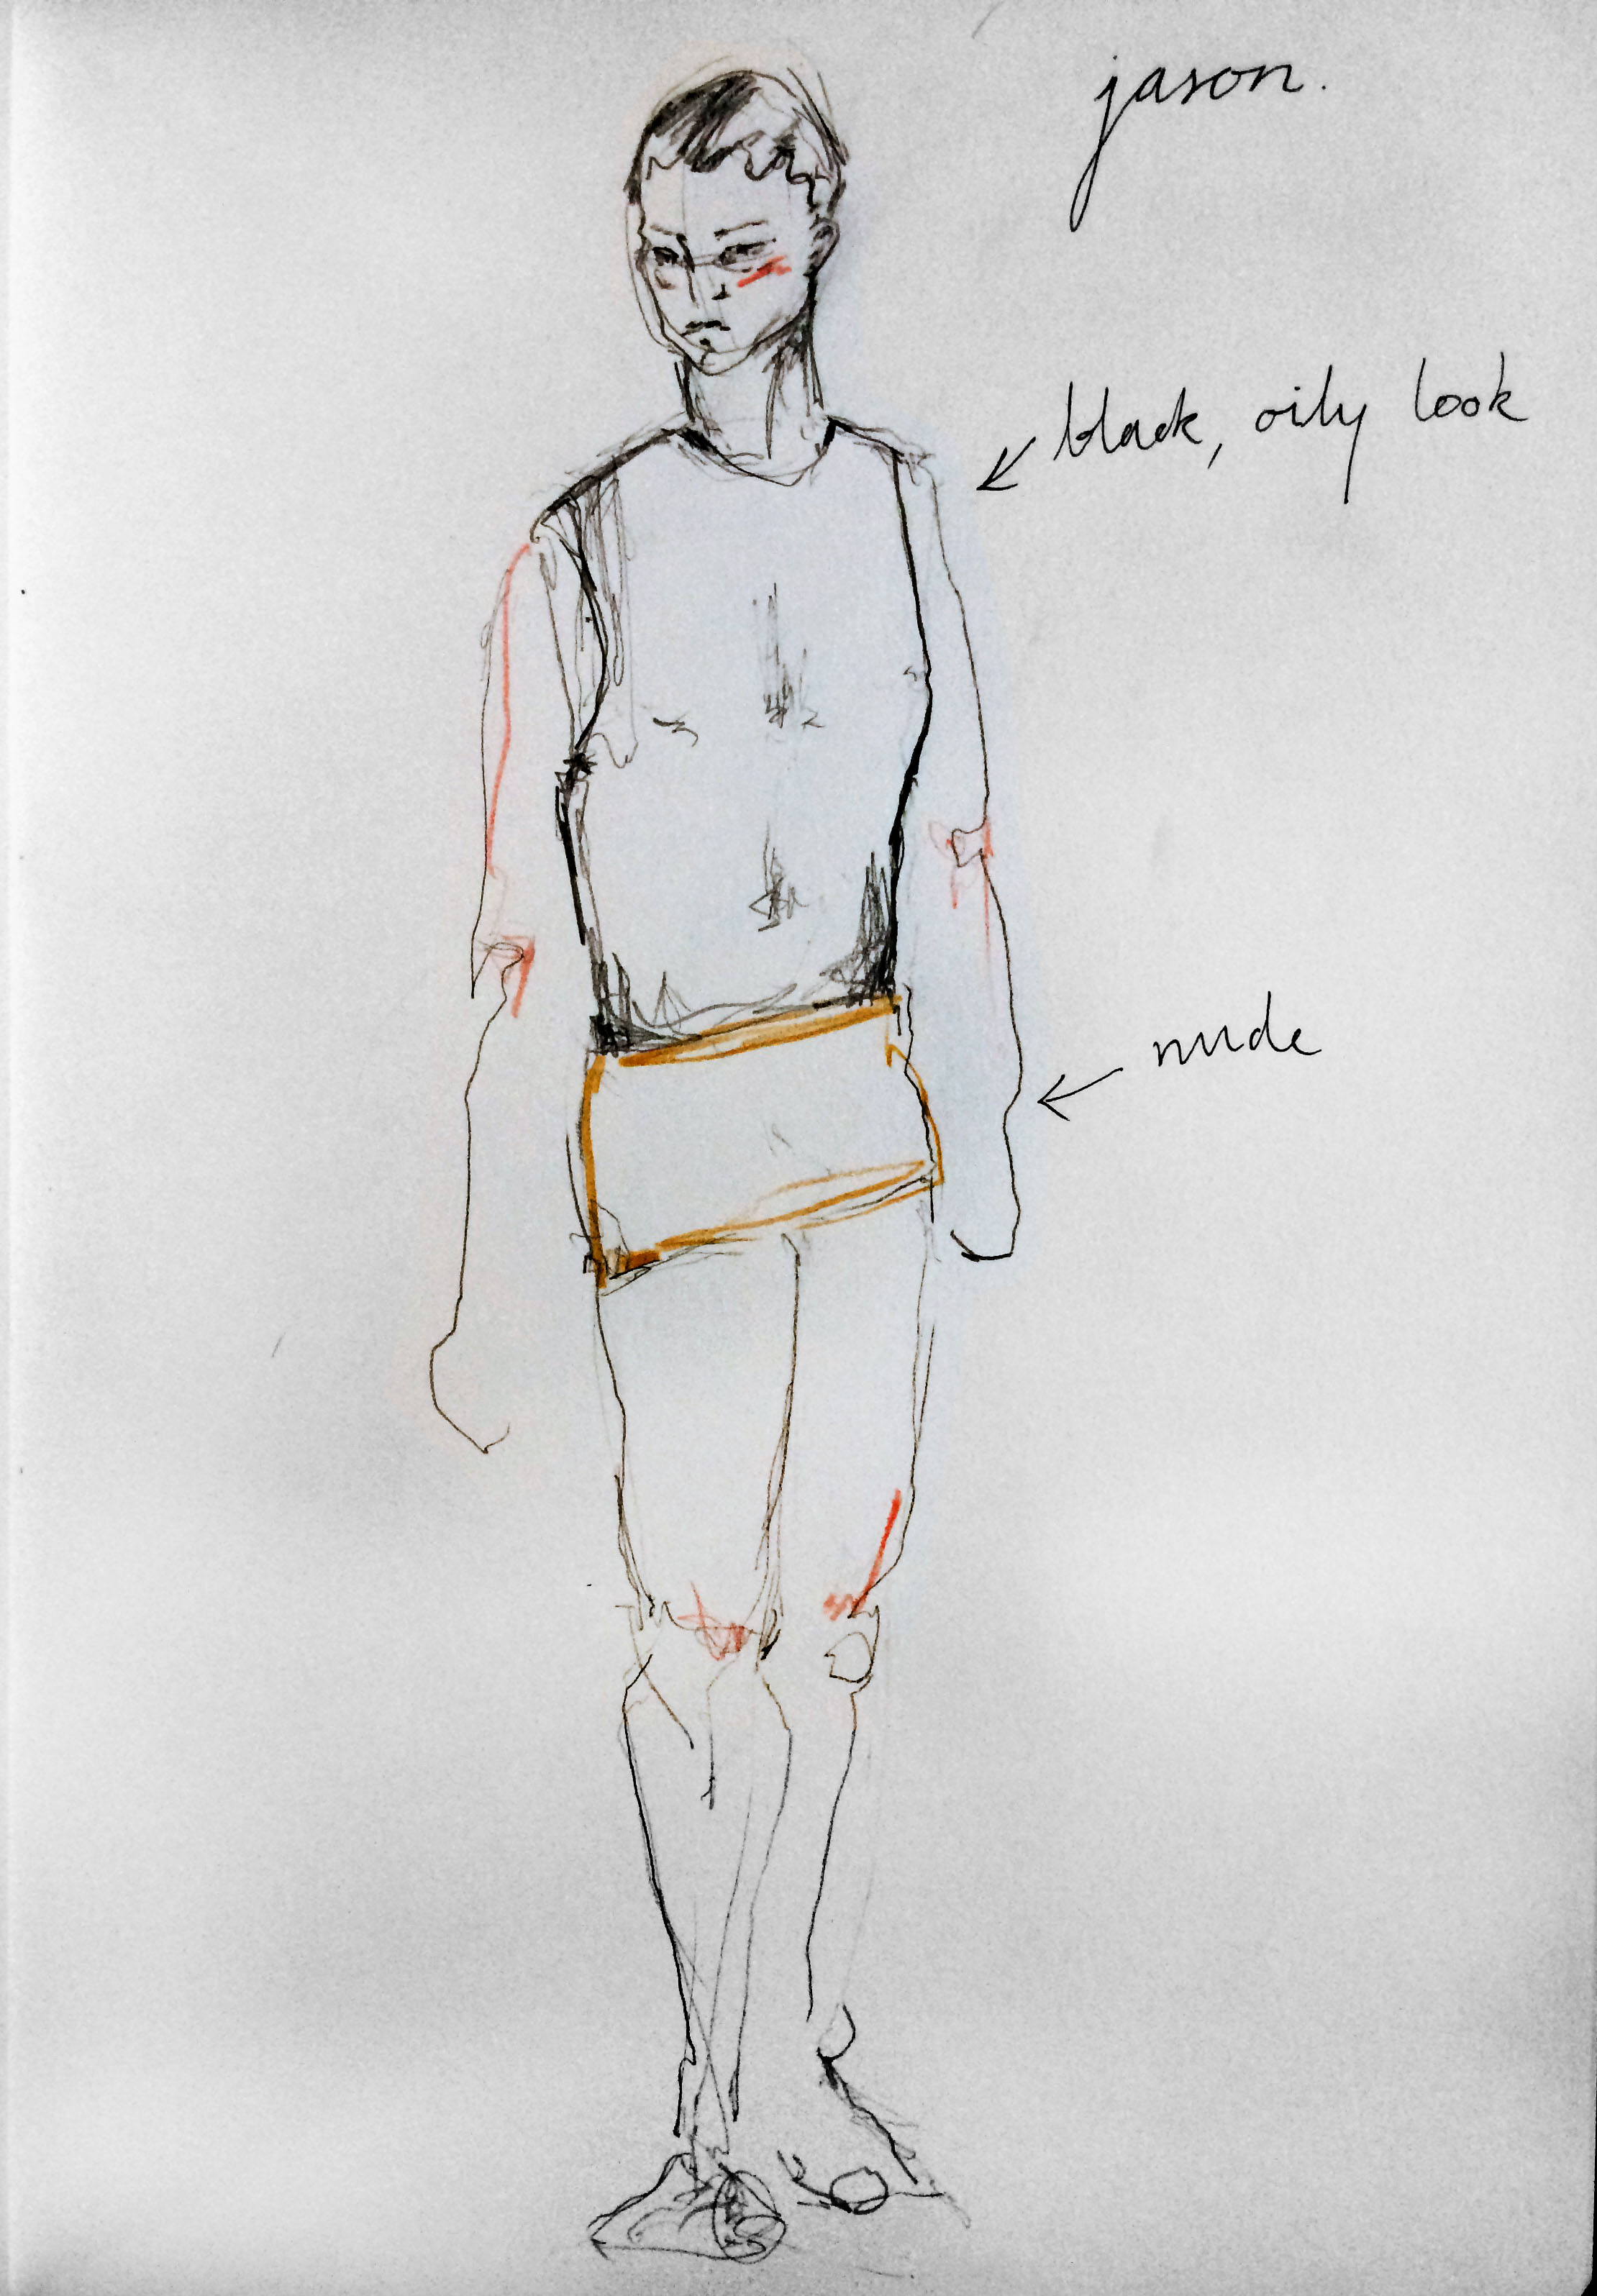 jason.
black, oily look
nude